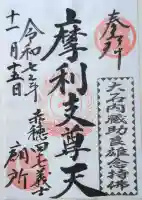 奉拝
大石内蔵助良雄念持佛
摩利支尊天
赤穂四十七義士
願所
令和七年
十一月十五日